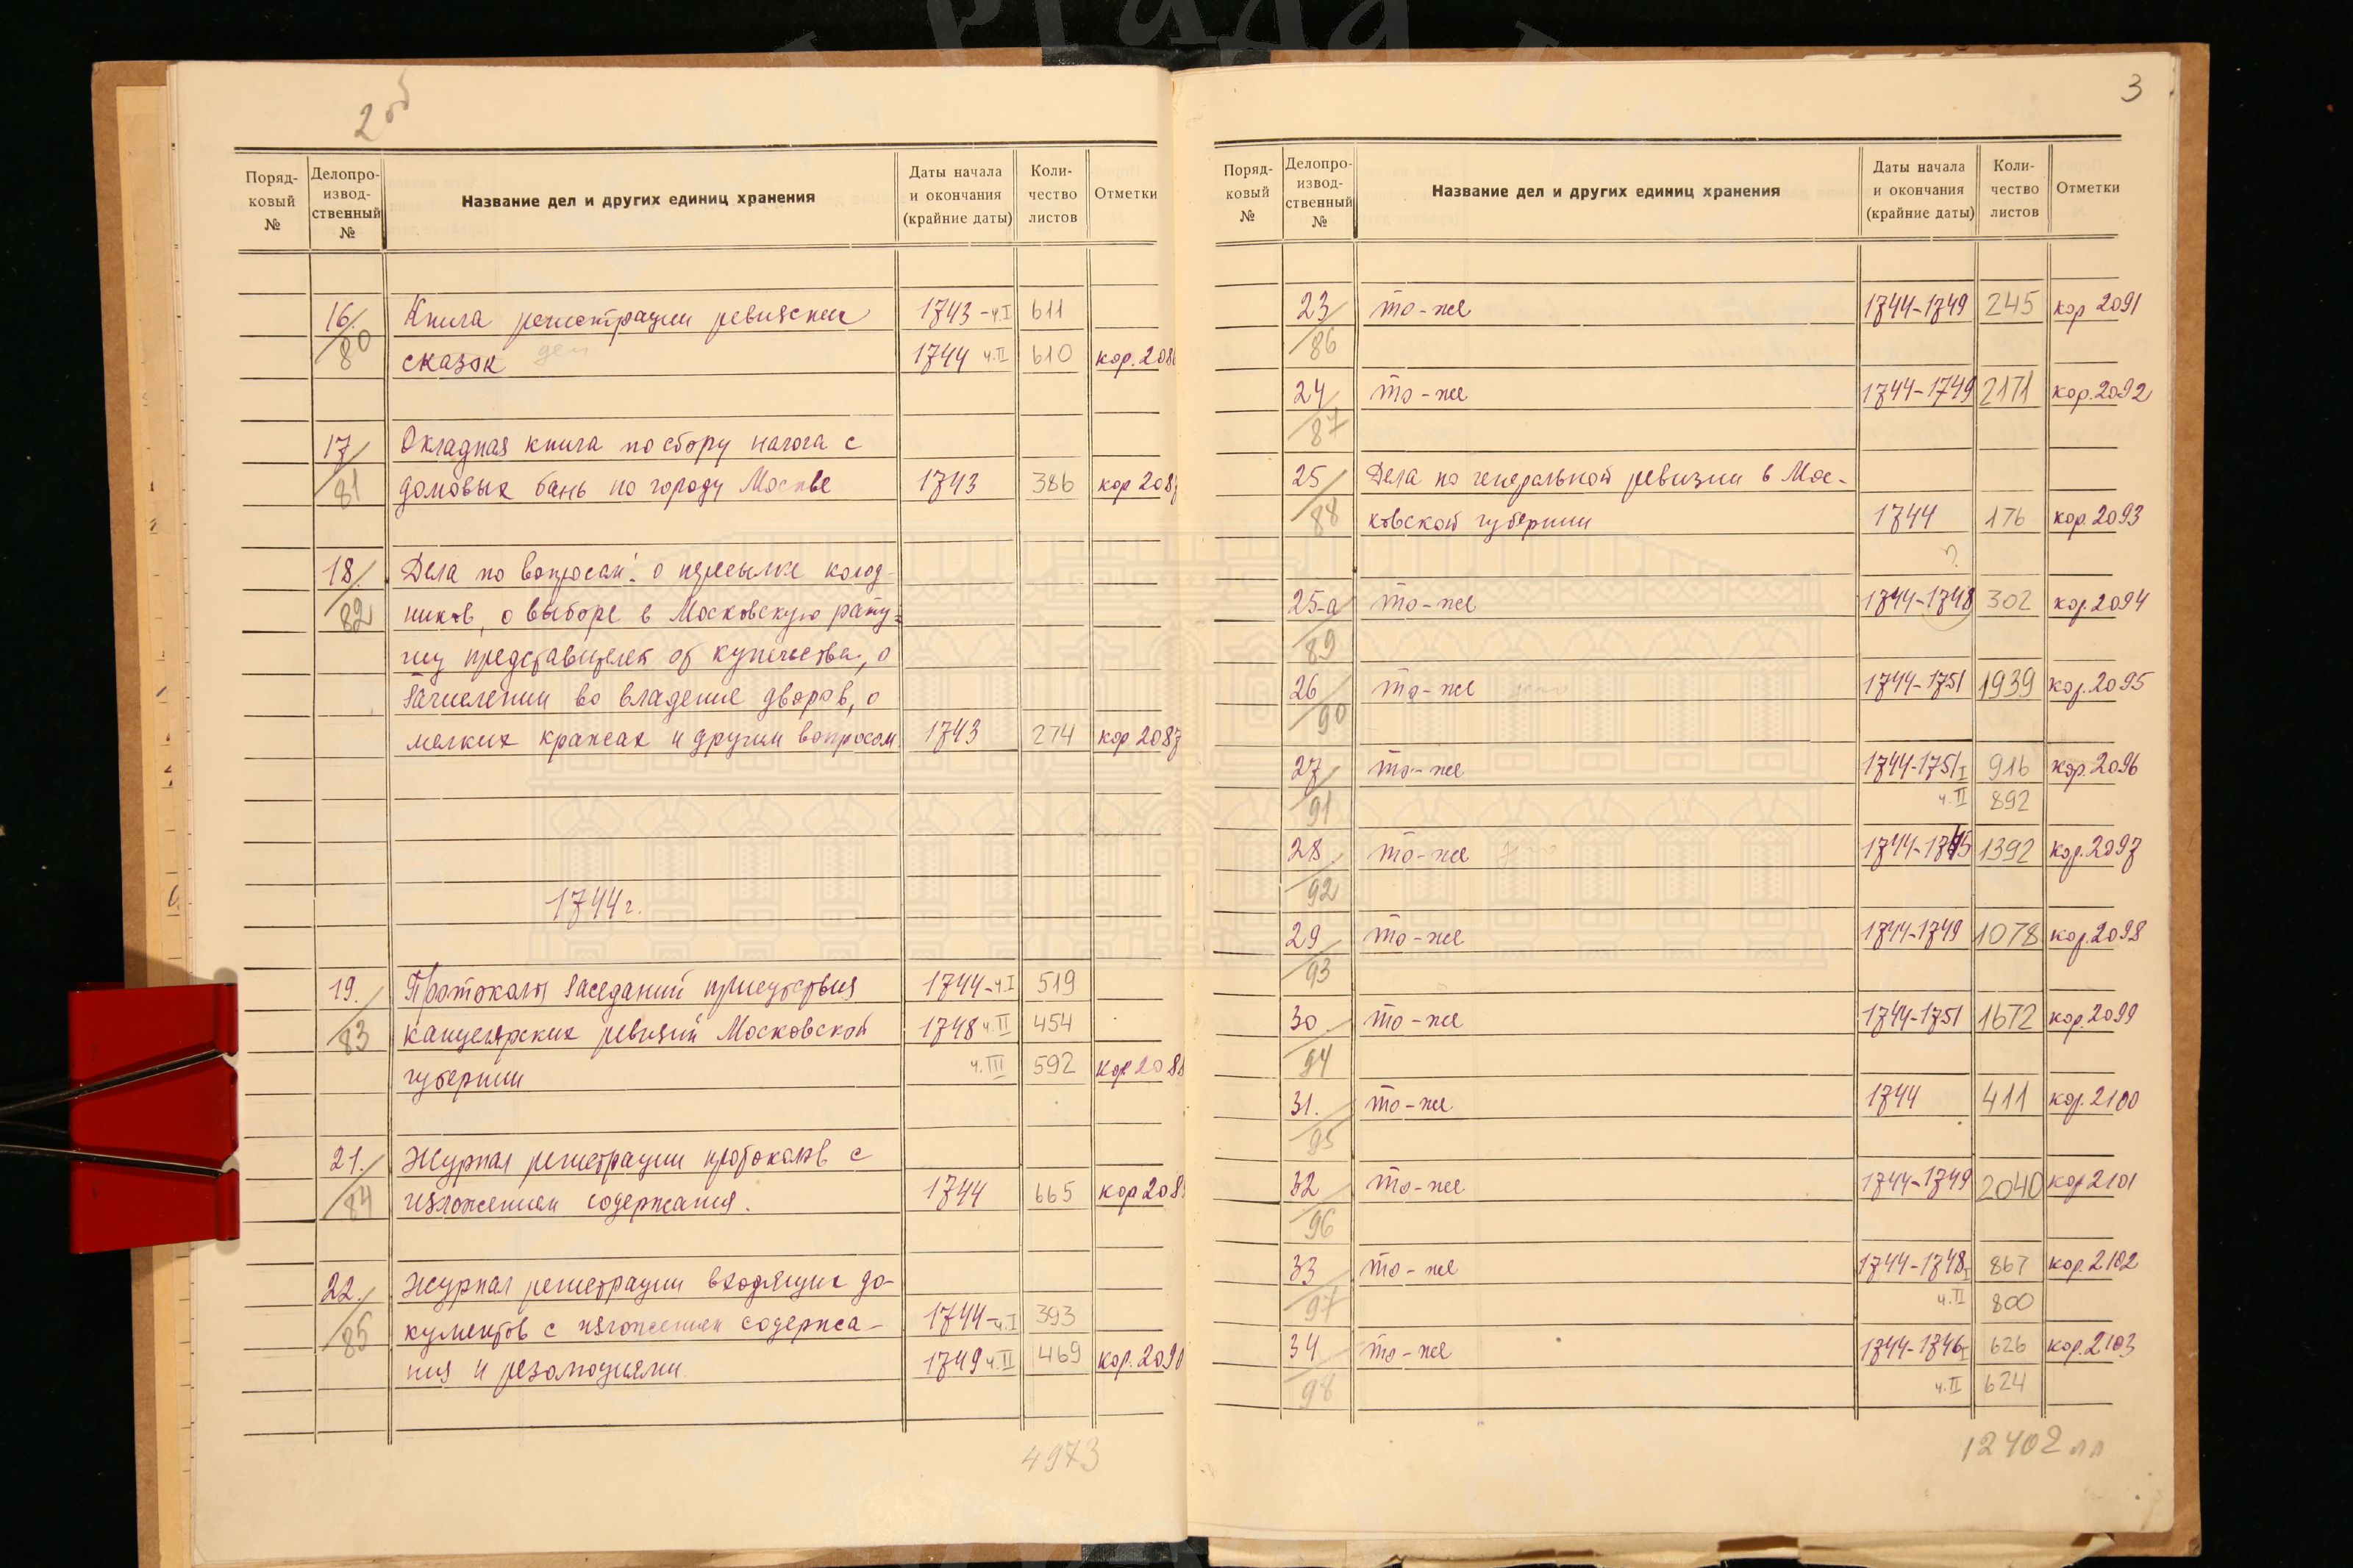 2 об
Поряд-ковый № | Делопро-извод-ственный № | Название дел и других единиц хранения | Даты начала и окончания (крайние даты) | Коли-чество листов | Отметки
16./80 Книга регистрации ревизских 1743 - ч.I 611
сказок 1744 ч.II 610 кор. 208
17/81 Окладная книга по сбору налога с
домовых бань по городу Москве 1743 386 кор 208
18./82 Дела по вопросам: о пересылке колод-
ников, о выборе в Московскую рату-
шу представителей от купечества, о
зачислении во владение дворов, о
мелких кражах и другим вопросам 1743 274 кор 2087
1744 г.
19./83 Протоколы заседаний присутствия 1744 - ч.I 519
канцелярских ревизий Московской 1748 ч.II 454
губернии ч.III 592 кор 208
21./84 Журнал регистрации протоколов с
изложением содержания. 1744 665 кор 208
22./85 Журнал регистрации входящих до-
кументов с изложением содержа- 1744 - ч.I 393
ния и резолюциями. 1749 ч.II 469 кор. 209
4973
3
Поряд-ковый № | Делопро-извод-ственный № | Название дел и других единиц хранения | Даты начала и окончания (крайние даты) | Коли-чество листов | Отметки
23/86 то-же 1744-1749 245 кор 2091
24/87 то-же 1744-1749 2171 кор. 2092
25/88 Дела по генеральной ревизии в Мос-
ковской губернии 1744 176 кор. 2093
?
25-а/89 то-же 1744-1748 302 кор. 2094
26/90 то-же 1744-1751 1939 кор. 2095
27/91 то-же 1744-1751 I 916 кор. 2096
ч.II 892
28/92 то-же 1744-1745 1392 кор. 2097
29/93 то-же 1744-1749 1078 кор. 2098
30/94 то-же 1744-1751 1672 кор. 2099
31./95 то-же 1744 411 кор. 2100
32/96 то-же 1744-1749 2040 кор 2101
33/97 то-же 1744-1748 I 867 кор. 2102
ч.II 800
34/98 то-же 1744-1746 I 626 кор. 2103
ч.II 624
12402 лл